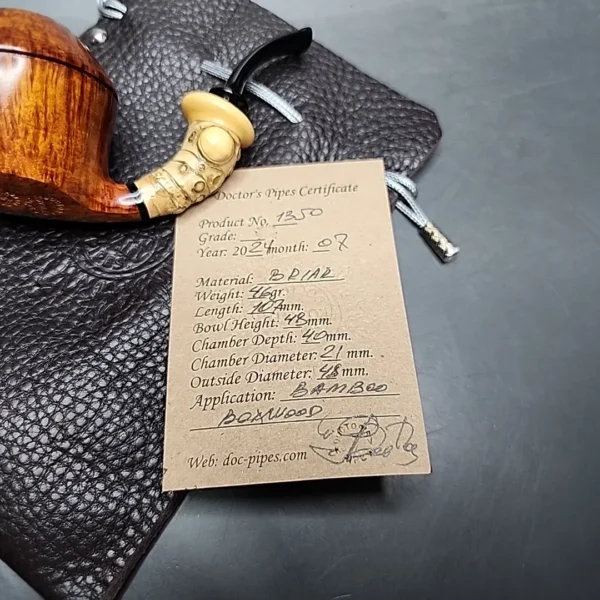 Doctor's Pipes Certificate
Product No, 1350
Grade:
Year: 2024 month: 07
Material: BRIAR
Weight: 46gr.
Length: 107mm.
Bowl Height: 48mm.
Chamber Depth: 40mm.
Chamber Diameter: 21 mm.
Outside Diameter: 48mm.
Application: BAMBOO
BOXWOOD
Web: doc-pipes.com